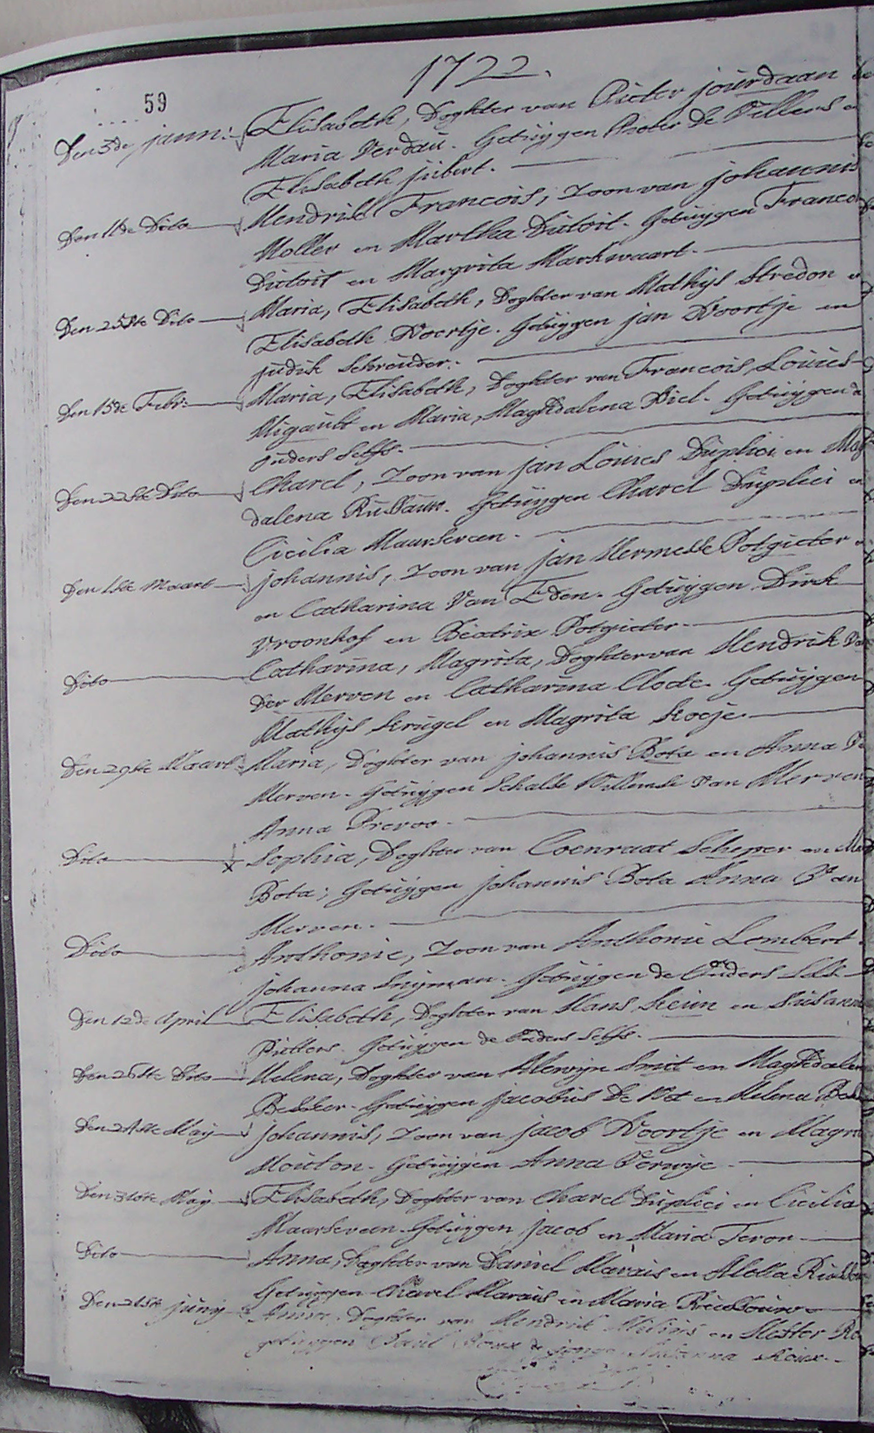 1722.
59
Den 3de jann: Elisabeth, Doghter van Pieter jourdaan
Maria Verdau. Getuijgen Pieter De Villers
Elisabeth jubert.
Den 11de Dito Hendrik Francois, Zoon van johannis
Moller en Martha Dutoit. Getuijgen Franco
Dutoit en Margrita Markwaart.
Den 25ste Dito Maria, Elisabeth, Doghter van Mathijs Stredon
Elisabeth Woortje. Getuijgen jan Woortje en
judik Schreuder.
Den 15de Febr: Maria, Elisabeth, Doghter van Francois, Louies
Migault en Maria, Maghdalena Piel. Getuijgen
ouders selfs.
Den 22ste Dito Charel, Zoon van jan Louies Duplici en Mag
dalena Russauw. Getuijgen Charel Duplici en
Cicilia Maarseveen.
Den 1ste Maart johannis, Zoon van jan Hermesse Potgieter
en Catharina Van Eden. Getuijgen Dirk
Vroonhof en Beatrix Potgieter.
Dito Catharina, Magrita, Doghter van Hendrik Van
Der Merven en Catharina Cloete. Getuijgen
Mathijs Krugel en Magrita Koeje.
Den 29ste Maart Maria, Doghter van johannis Bota en Anna
Merven. Getuijgen Schalk Willemse Van Merven
Anna Prevoo.
Dito x Sophia, Doghter van Coenraat Scheper en
Bota; Getuijgen johannis Bota Anna Van
Merven.
Dito Anthonie, Zoon van Anthonie Lombert
johanna Snijman. Getuijgen de ouders selfs
Den 12de April Elisabeth, Doghter van Hans, Heim en Susanna
Pietters. Getuijgen de ouders selfs.
Den 26ste Dito Helena, Doghter van Alewijn Smit en Maghdalen
Bekker. Getuijgen jacobus De Wet en Helena
Den May johannis, Zoon van jacob Woortje en Magri
Mouton. Getuijgen Anna Verwije.
Den 31ste May Elisabeth, Doghter van Charel Duplici en Cicilia
Maarseveen. Getuijgen jacob en Maria Teron
Dito Anna, Doghter van Daniel Marais en
Getuijgen Charel Marais en Maria
Den 21ste junij Anna, Doghter van Hendrik en Hester
getuijgen Paul Roux de jonge Susanna Roux.